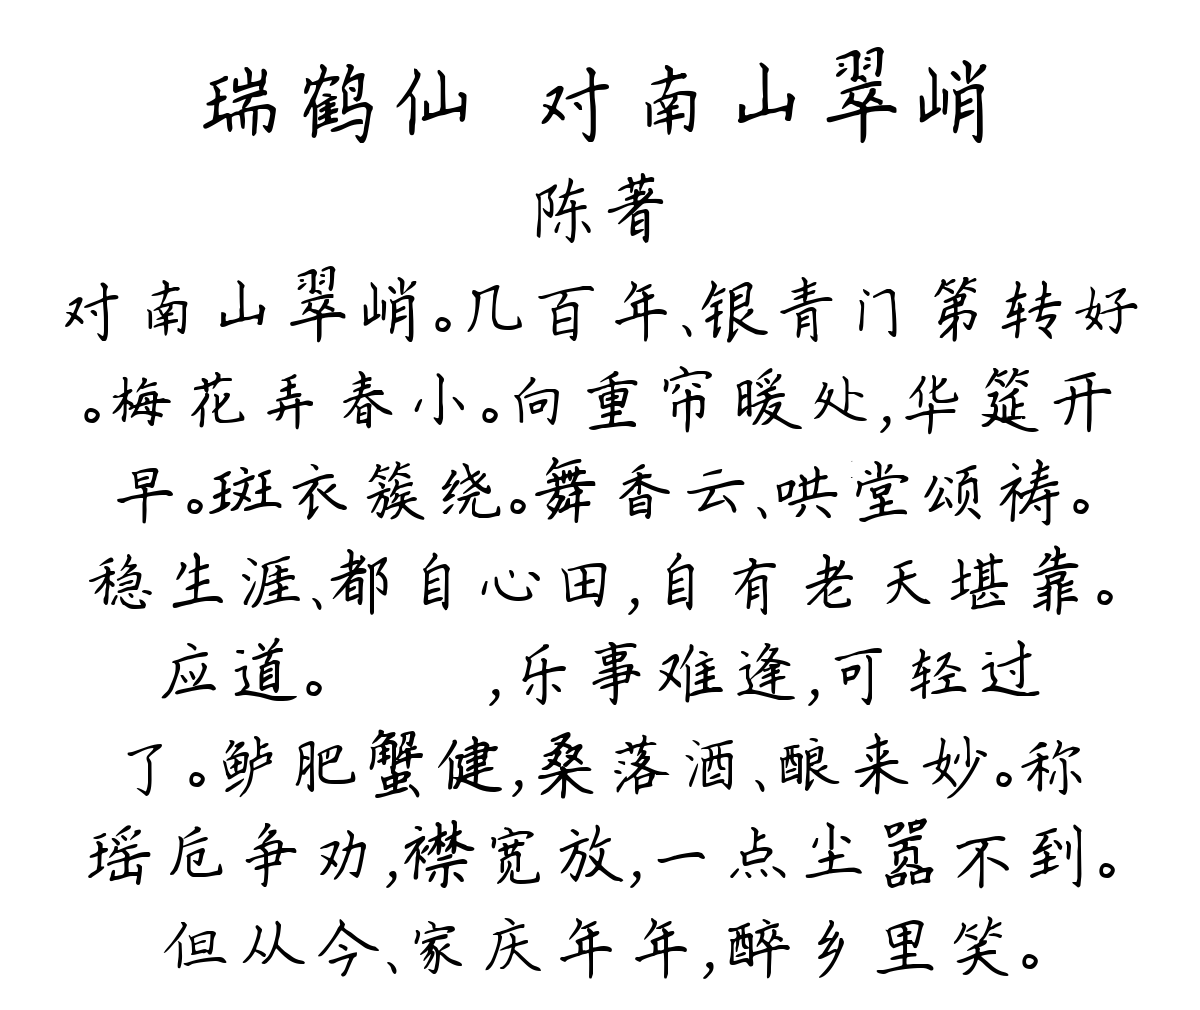 瑞鹤仙 对南山翠峭
陈著
对南山翠峭。几百年、银青门第转好
。梅花弄春小。向重帘暖处,华筵开
早。斑衣簇绕。舞香云、哄堂颂祷。
稳生涯、都自心田,自有老天堪靠。
应道。 ,乐事难逢,可轻过
了。鲈肥蟹健,桑落酒、酿来妙。称
瑶卮争劝,襟宽放,一点尘嚣不到。
但从今、家庆年年,醉乡里笑。